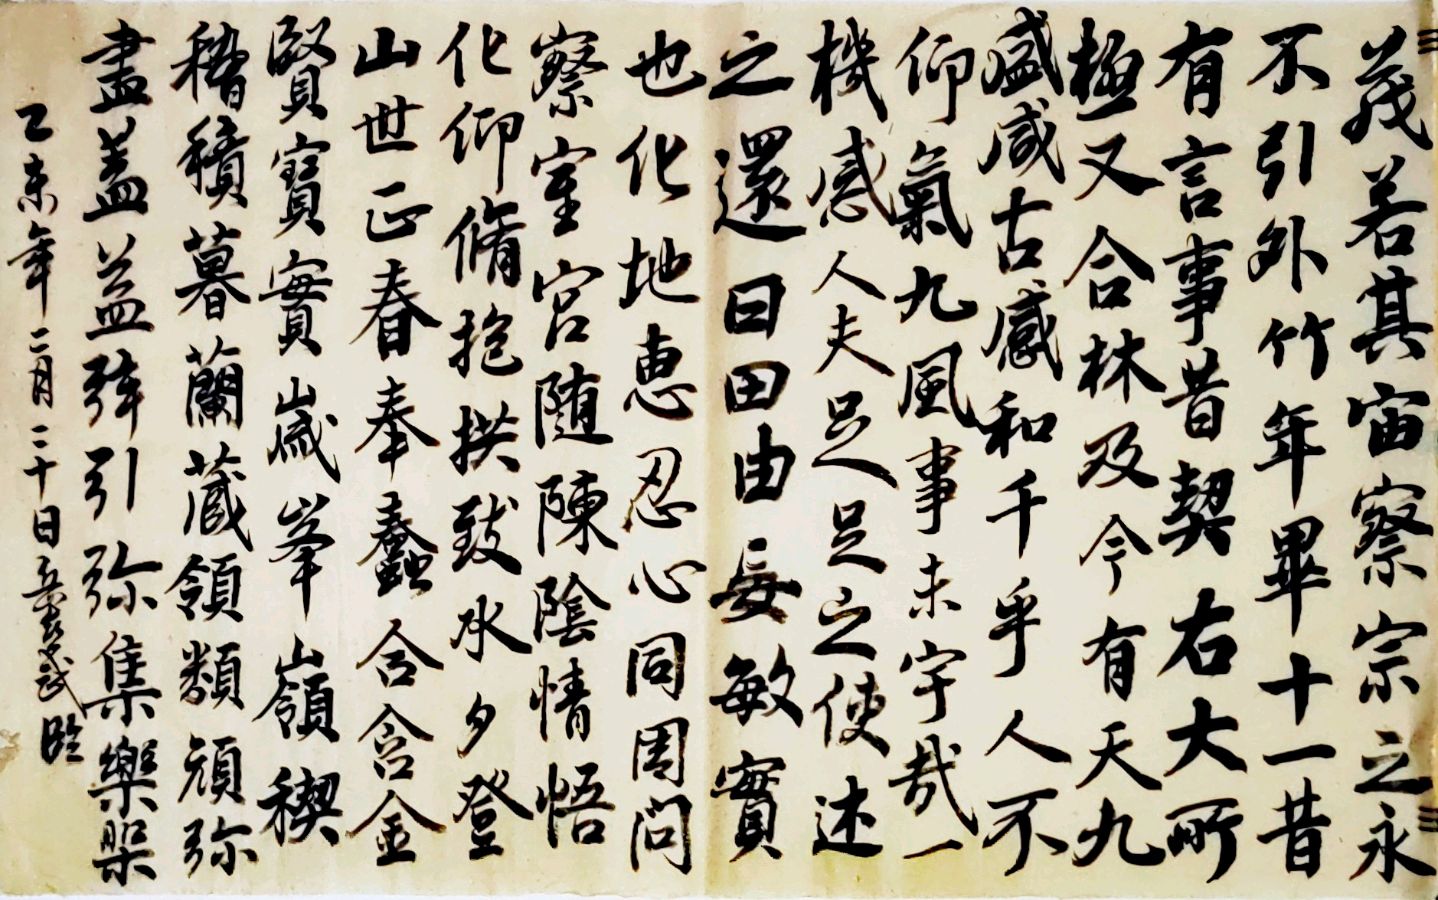 義若其宙察宗之永
不引外竹年畢十一昔
有言事昔契右大所
極又合林及今有天九
盛咸古感和千乎人不
仰氣九風事未宇哉一
機感人夫足足之使述
之還曰田由妄敏實
也化地惠忍心同周問
察室宮随陳陰情悟
化仰脩抱揆致水夕登
山世正春奉蠢合含金
賢寶實歲峯嶺稧
稽積暮蘭蔵領類頑弥
盡蓋益弦引弥集樂
乙未年二月二十日 臨